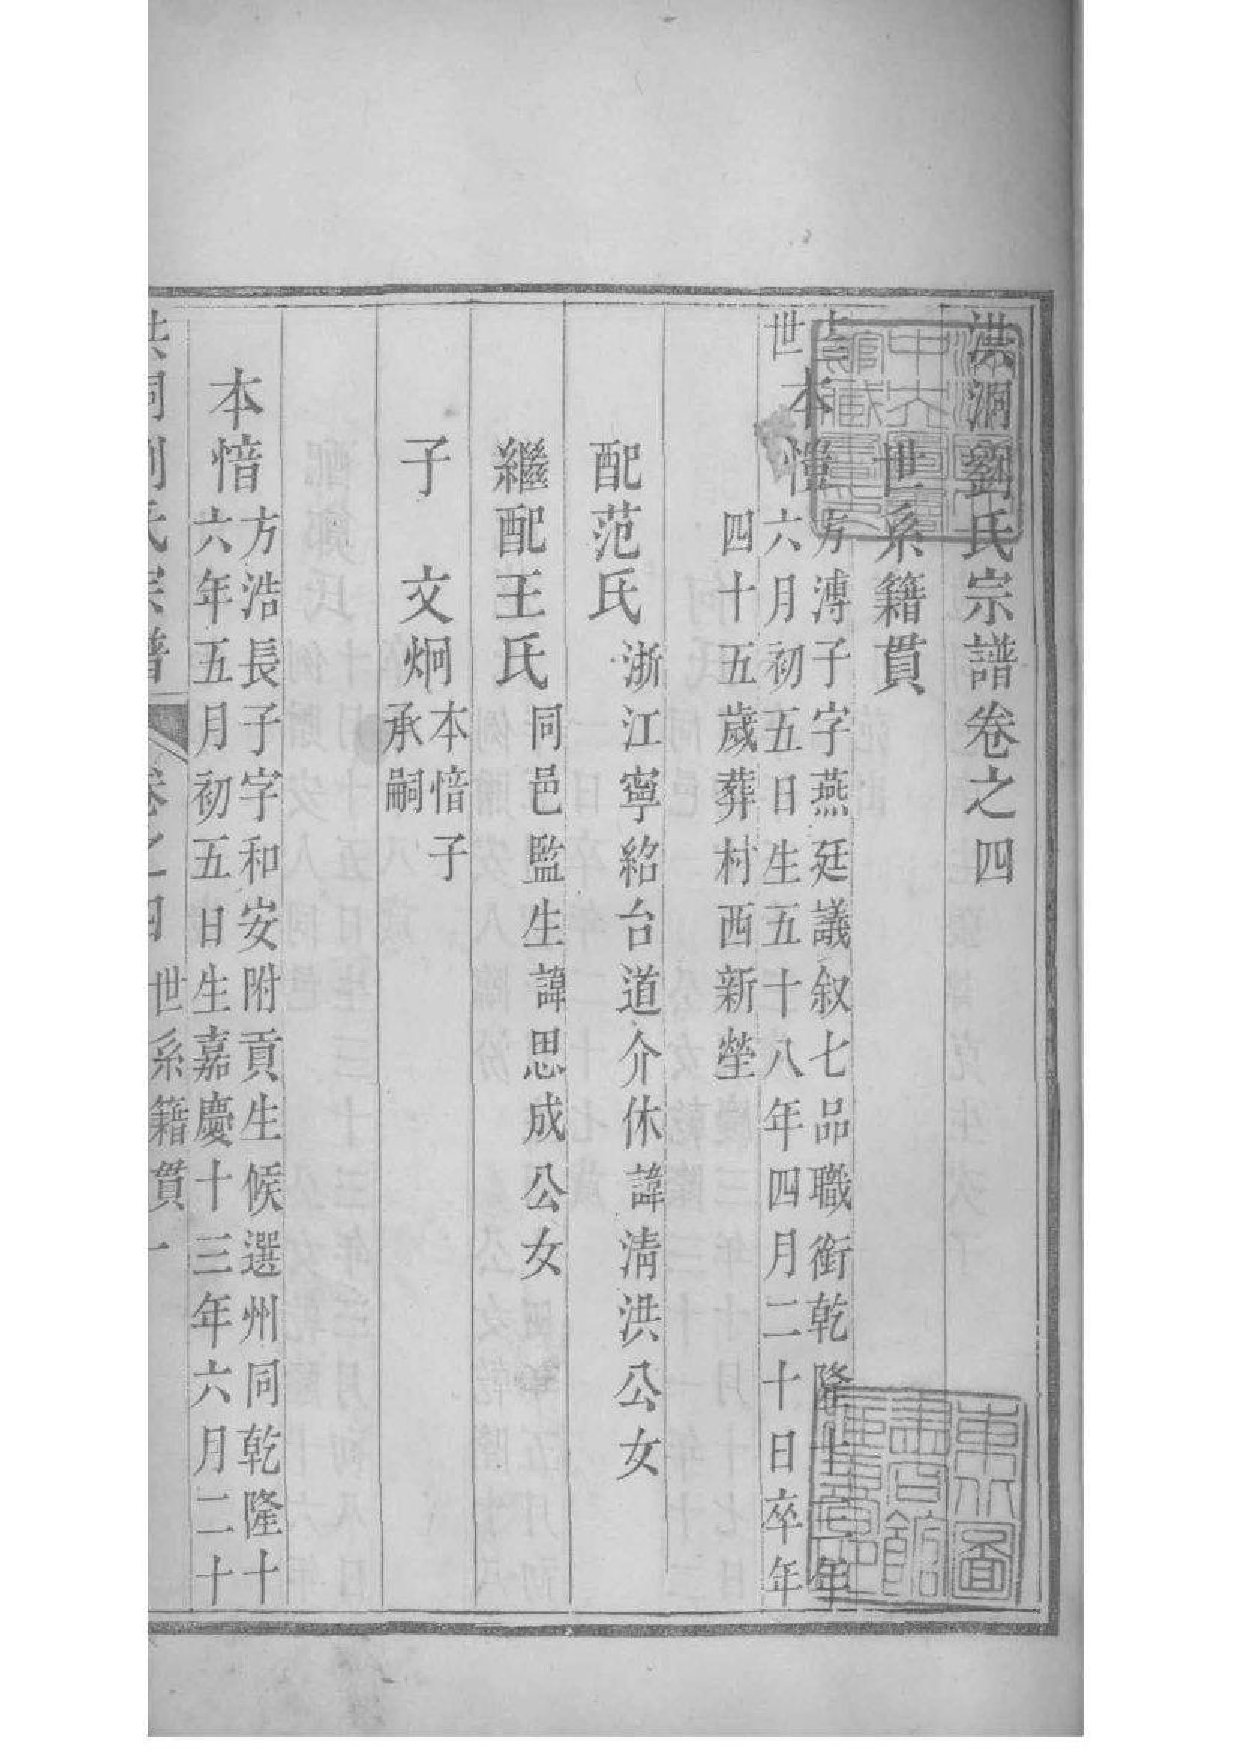 洪洞劉氏宗譜卷之四
世系籍貫
世
本懂方溥子字燕廷議叙七品職銜乾隆十二年
六月初五日生五十八年四月二十日卒年
四十五歲葬村西新塋
配范氏浙江寧紹台道介休諱清洪公女
繼配王氏同邑監生諱思成公女
子 文炯本愔子
承嗣
本愔方浩長子字和安附貢生候選州同乾隆十
六年五月初五日生嘉慶十三年六月二十
洪洞劉氏宗譜 卷之四 世系籍貫 一